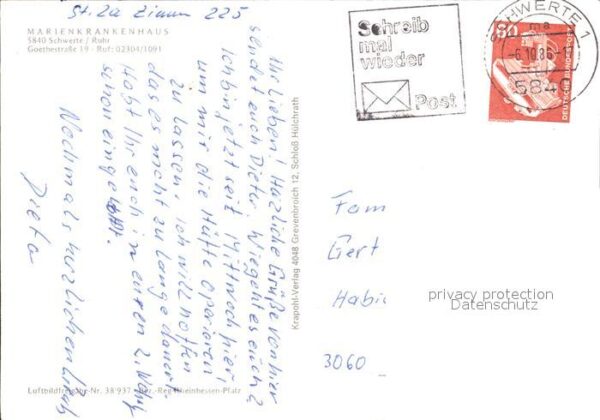 St. 2a Zimm 225
MARIENKRANKENHAUS
5840 Schwerte / Ruhr
Goethestraße 19 - Ruf: 02304/1091
Ihr Lieben! Herzliche Grüße von hier
sendet euch Dieter. Wie geht es euch?
ich bin jetzt seit Mittwoch hier,
um mir die Hüfte operieren
zu lassen, ich will hoffen
das es nicht zu lange dauert.
Habt Ihr euch in euren 2. Wohn.
schon eingelebt.
Nochmals herzlichen Gruß
Dieter
Luftbildfreigabe-Nr. 38'937 Bez.-Reg. Rheinhessen-Pfalz
Krapohl-Verlag 4048 Grevenbroich 12, Schloß Hülchrath
Schreib
mal
wieder
Post
SCHWERTE 1
ma
-6.10.86-
5840
80
DEUTSCHE BUNDESPOST
Fam
Gert
Habi
3060
privacy protection
Datenschutz